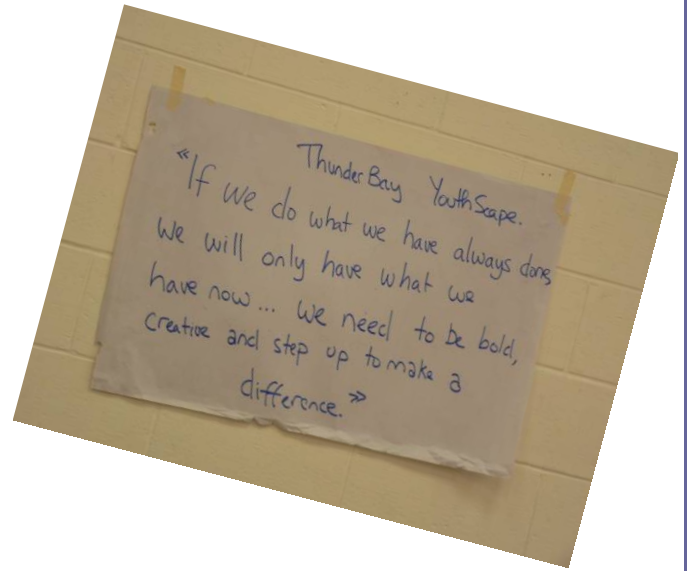 Thunder Bay YouthScape.
"If we do what we have always done,
we will only have what we
have now... we need to be bold,
creative and step up to make a
difference."